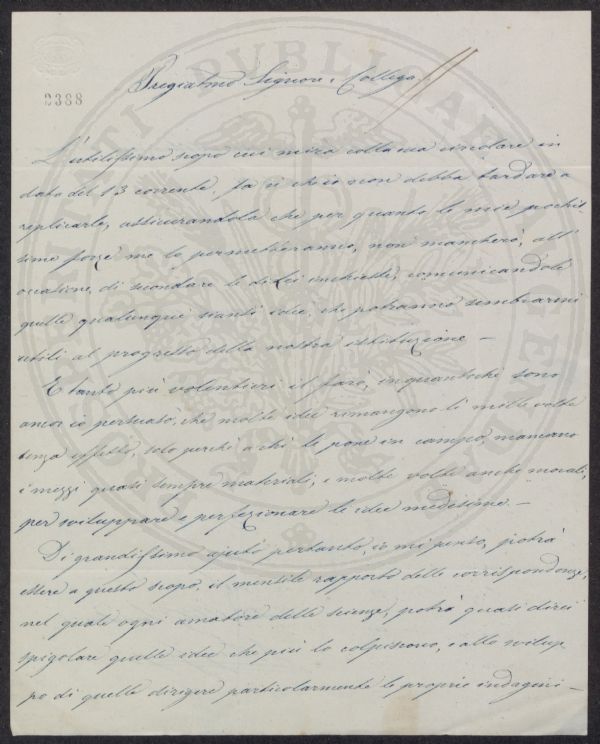 2388
Pregiatmo Signore e Collega
L'utilissimo scopo cui mira colla sua circolare in
data del 13 corrente, fa sì ch'io non debba tardare a
replicarle, assicurandola che per quanto le mie pochis-
sime forze me lo permetteranno, non mancherò, all'
occasione, di secondare le di Lei inchieste, comunicandole
quelle qualunque siansi idee, che potranno sembrarmi
utili al progresso della nostra istituzione —
E tanto più volentieri il farò, inquantochè sono
ancor io persuaso, che molte idee rimangono lì mille volte
senza effetto, solo perchè a chi le pone in campo, mancano
i mezzi quasi sempre materiali, e molte volte anche morali,
per sviluppare e perfezionare le idee medesime —
Di grandissimo ajuto pertanto, io mi penso, potrà
essere a questo scopo, il mensile rapporto delle corrispondenze,
nel quale ogni amatore delle scienze, potrà quasi direi
spigolare quelle idee che più lo colpiscono, e allo svilup-
po di quelle dirigere particolarmente le proprie indagini —
PROSPERITATI PVBLICAE AVGENDAE